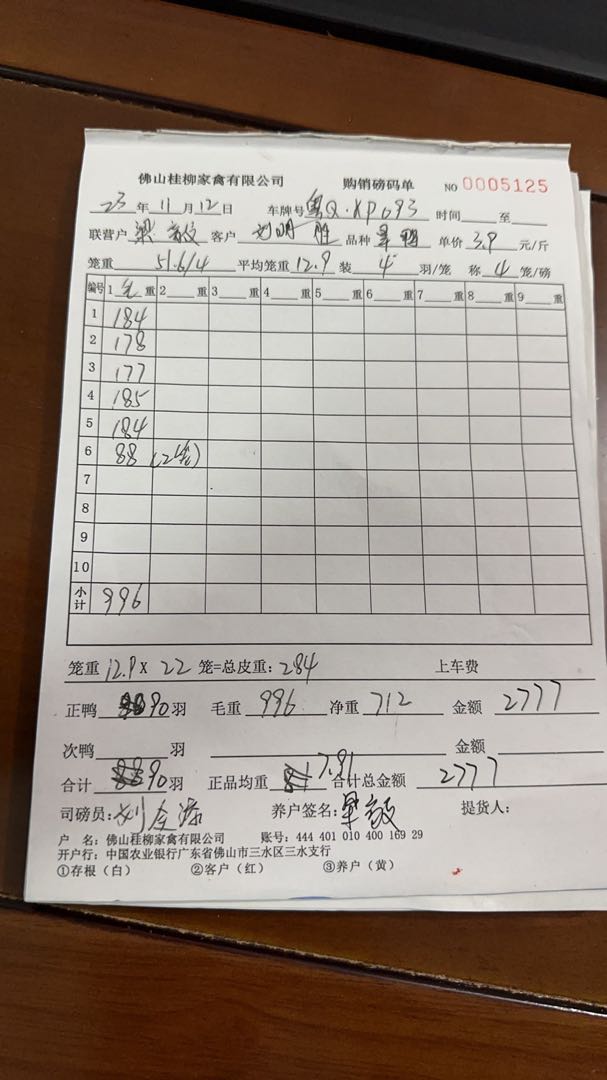 佛山桂柳家禽有限公司 购销磅码单 NO 0005125
23 年 11 月 12 日 车牌号 粤Q·XP693 时间 至
联营户 梁 客户 刘明胜 品种 旱鸭 单价 3.9 元/斤
笼重 51.6/4 平均笼重 12.9 装 4 羽/笼 称 4 笼/磅
编号 1 毛 重 2 重 3 重 4 重 5 重 6 重 7 重 8 重 9 重
1 184
2 178
3 177
4 185
5 184
6 88 (2笼)
7
8
9
10
小计 996
笼重 12.9 X 22 笼=总皮重: 284 上车费
正鸭 90 羽 毛重 996 净重 712 金额 2777
次鸭 羽 金额
合计 90 羽 正品均重 7.91 合计总金额 2777
司磅员: 刘 养户签名: 提货人:
户 名: 佛山桂柳家禽有限公司 账号: 444 401 010 400 169 29
开户行: 中国农业银行广东省佛山市三水区三水支行
①存根(白) ②客户(红) ③养户(黄)